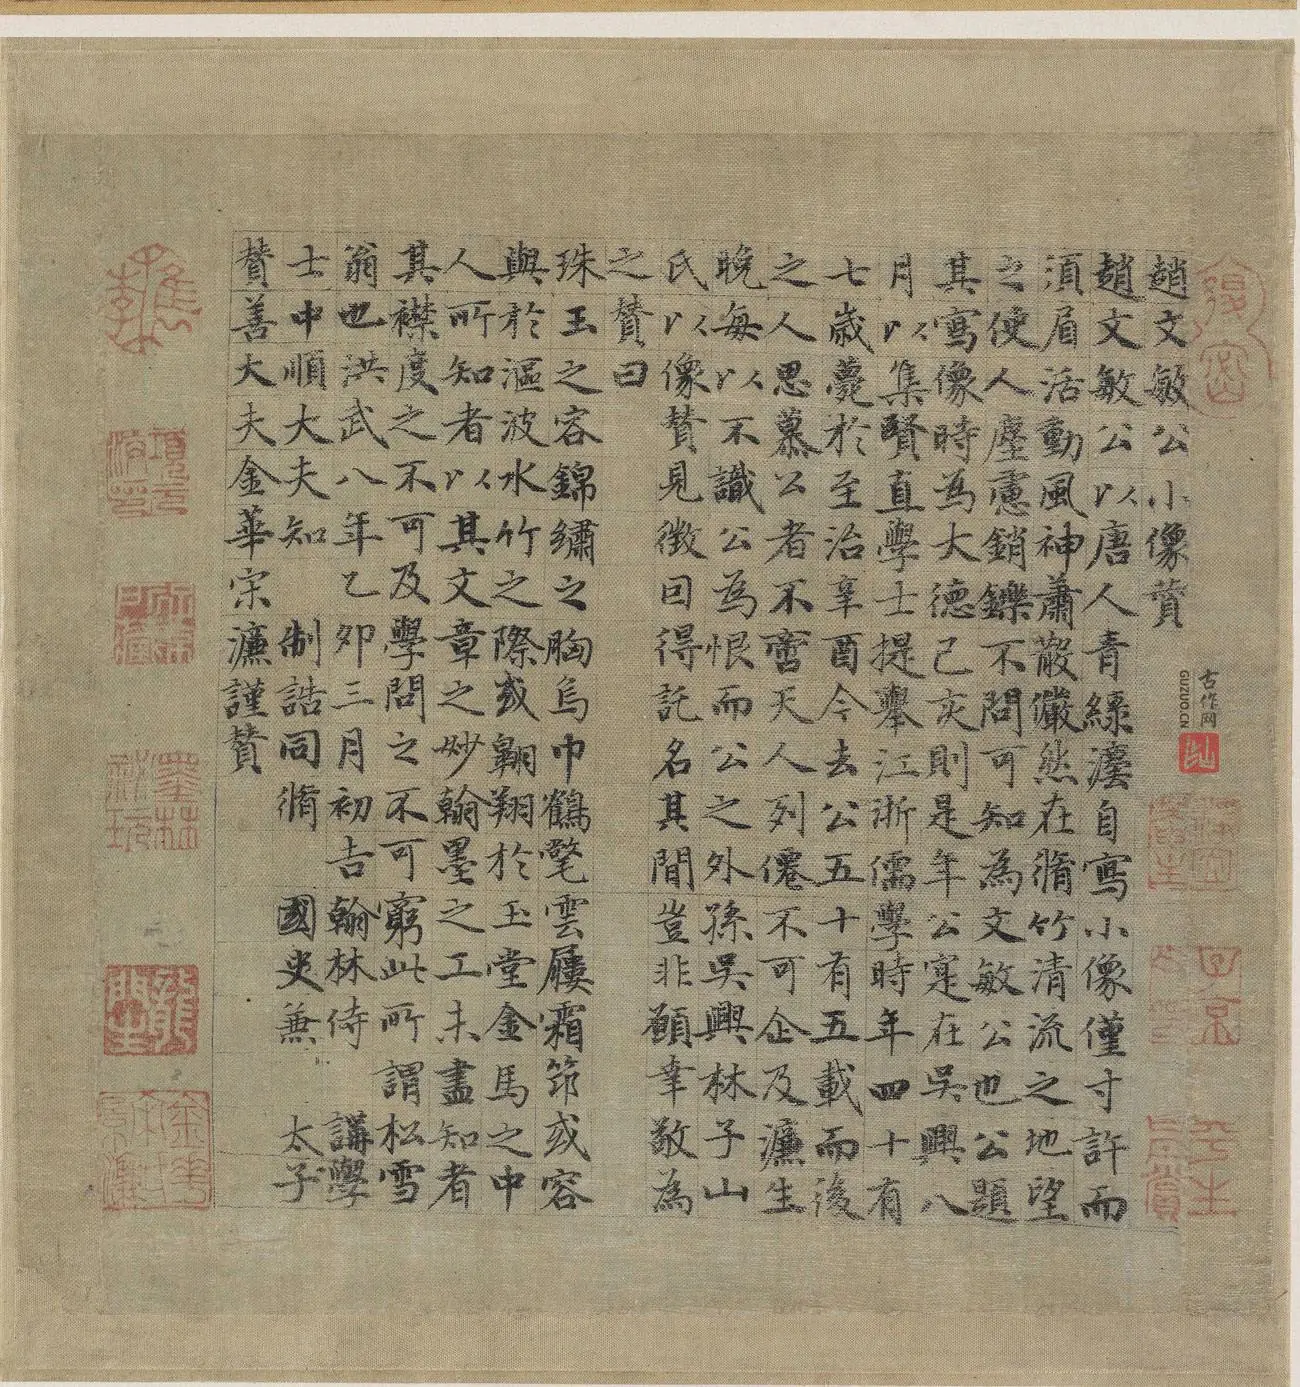 趙文敏公小像贊
趙文敏公以唐人青綠灋自寫小像僅寸許而
須眉活動風神蕭散儼然在脩竹清流之地望
之使人塵慮銷鑠不問可知為文敏公也公題
其寫像時為大德己亥則是年公寔在吳興八
月以集賢直學士提舉江浙儒學時年四十有
七歲薨於至治辛酉今去公五十有五載而後
之人思慕公者不啻天人列僊不可企及濂生
晚每以不識公為恨而公之外孫吳興林子山
氏以像贊見徵因得託名其間豈非願幸敬為
之贊曰
珠玉之容錦繡之胸烏巾鶴氅雲屨霜筇或容
與於漚波水竹之際或翱翔於玉堂金馬之中
人所知者以其文章之妙翰墨之工未盡知者
其襟度之不可及學問之不可窮此所謂松雪
翁也洪武八年乙卯三月初吉翰林侍 講學
士中順大夫知 制誥同脩 國史兼 太子
贊善大夫金華宋濂謹贊
古作网
GUZUO.CN
子京